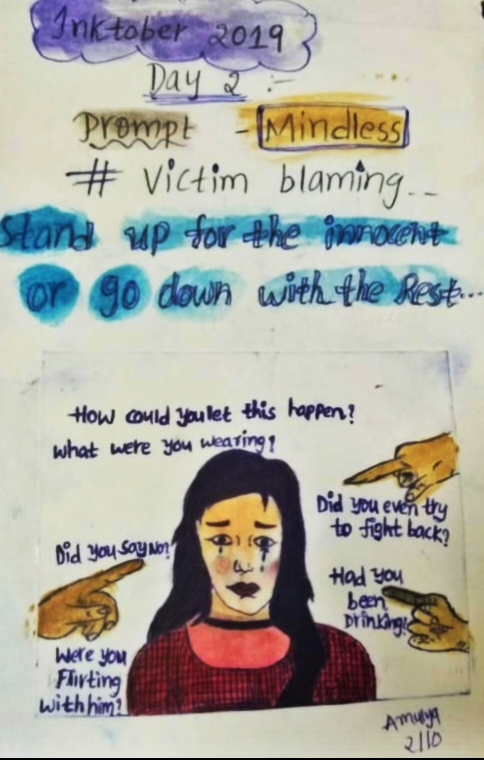 Inktober 2019
Day 2 :-
Prompt - Mindless
# Victim blaming...
Stand up for the innocent
or go down with the Rest...
How could you let this happen?
What were you wearing?
Did you even try
to fight back?
Did you say No?
Had you
been
Drinking?
Were you
Flirting
with him?
Amulya
2/10